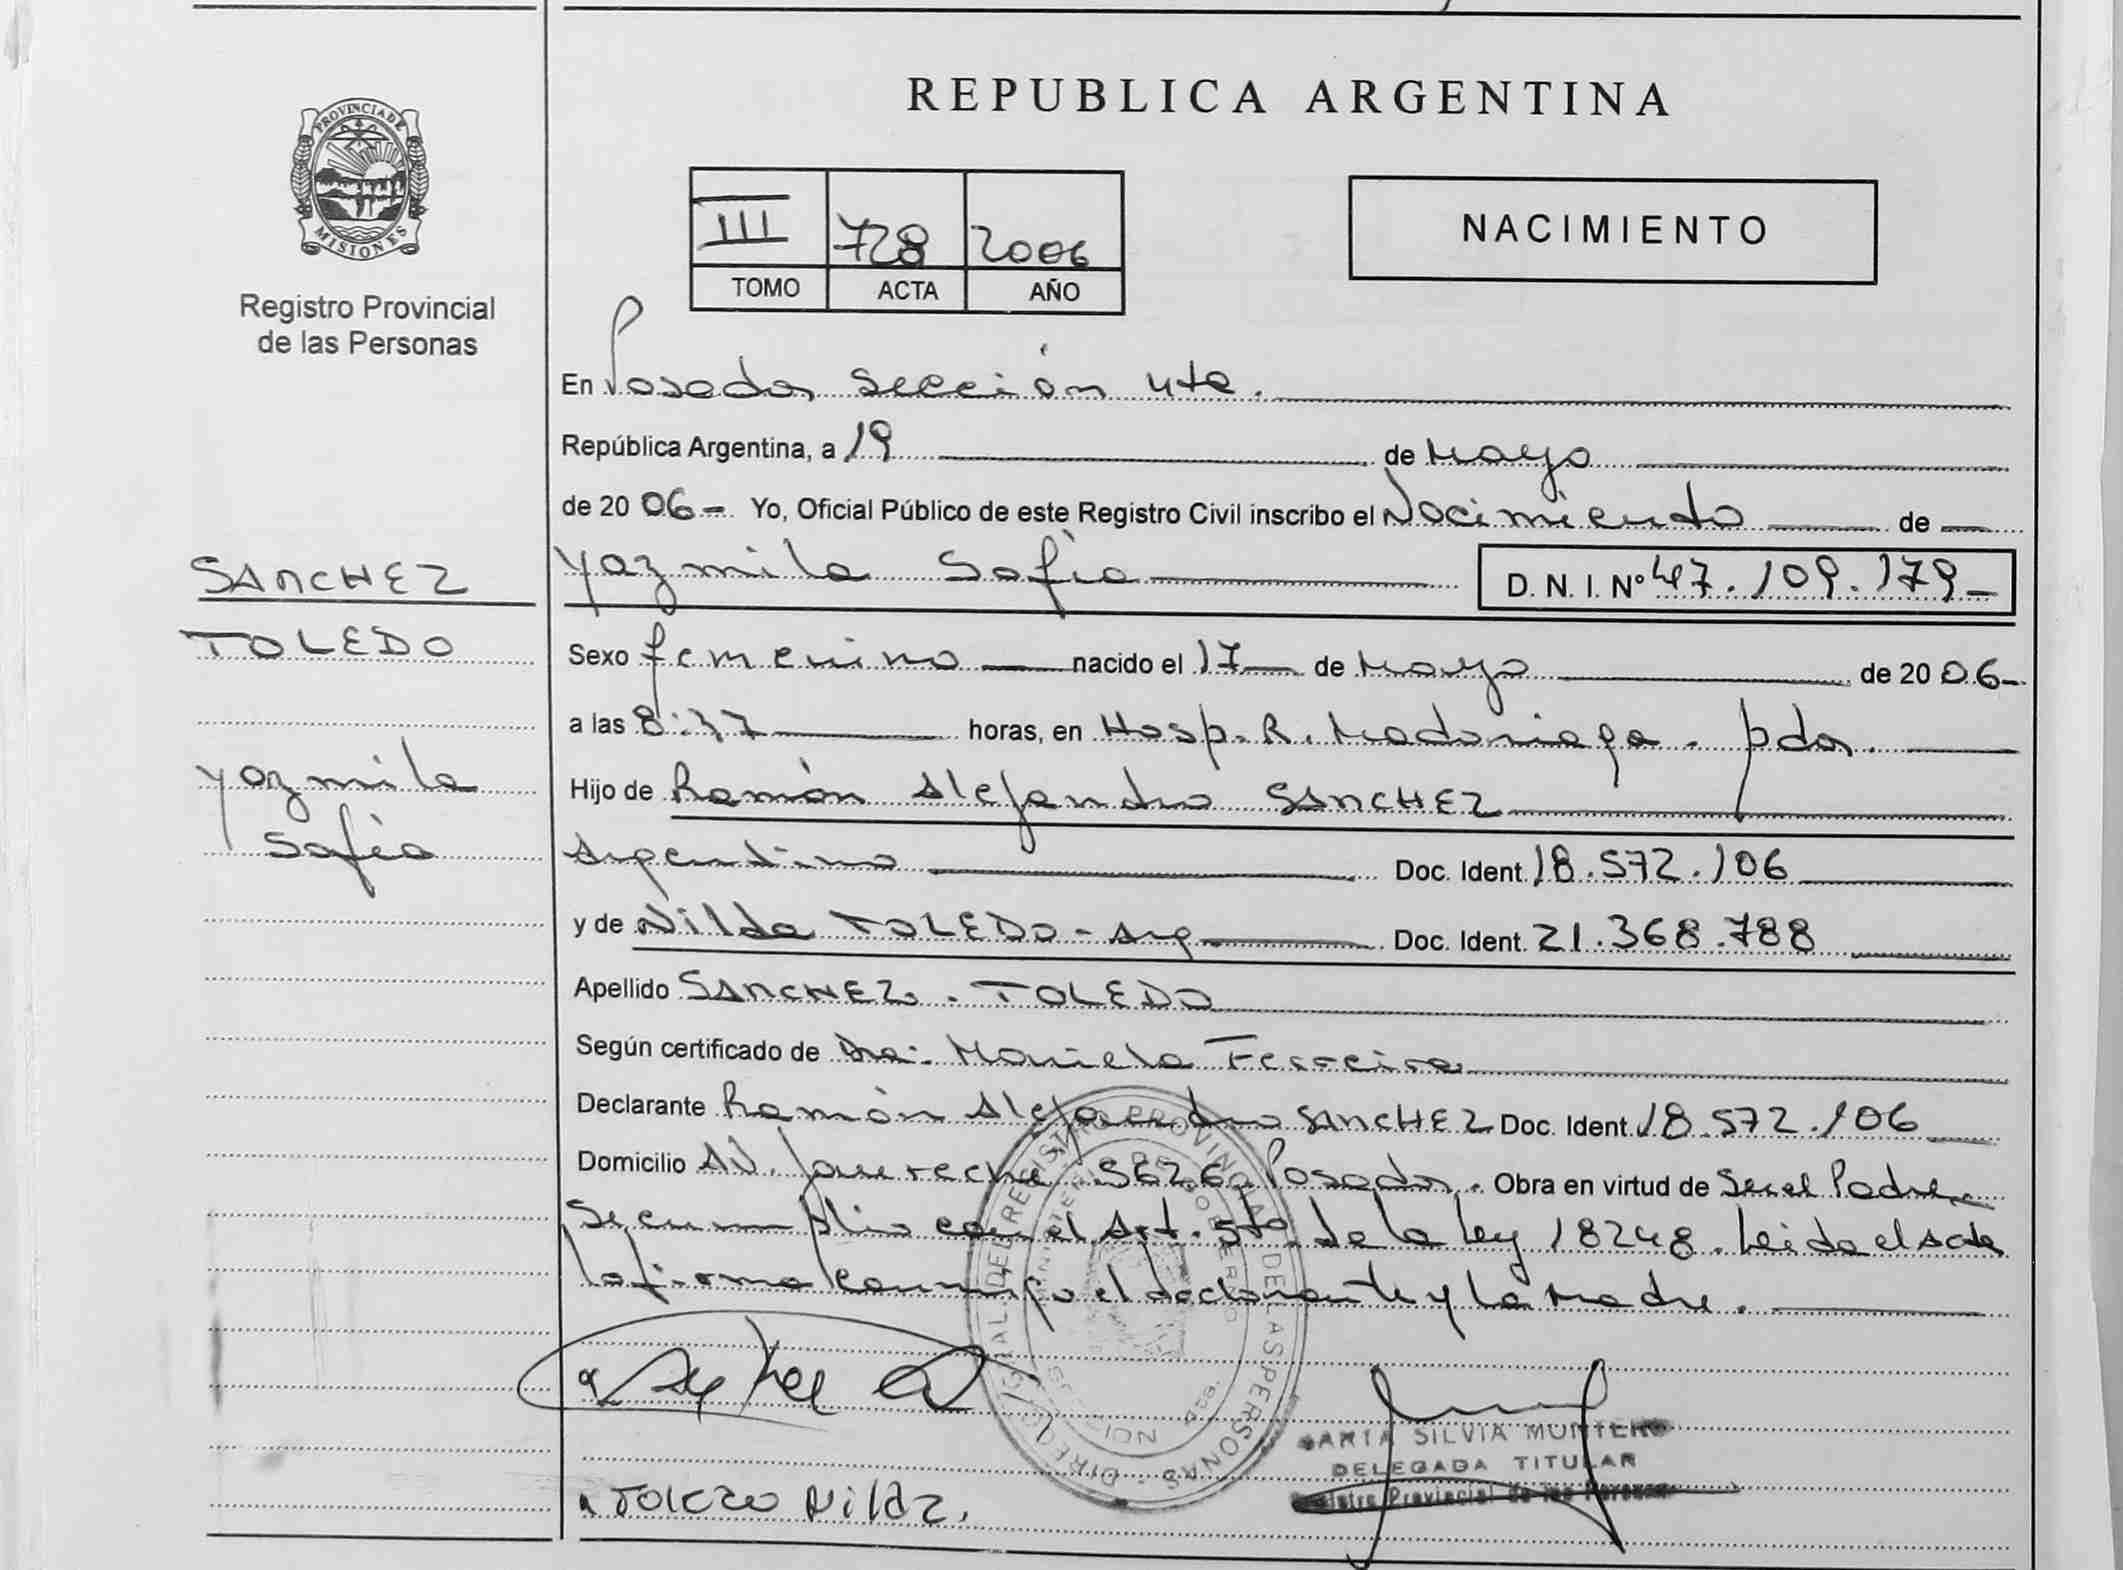 REPUBLICA ARGENTINA
PROVINCIA DE
MISIONES
Registro Provincial
de las Personas
III 728 2006
TOMO ACTA AÑO
NACIMIENTO
En Posadas sección 4ta.
República Argentina, a 19 de Mayo
de 20 06- Yo, Oficial Público de este Registro Civil inscribo el Nacimiento de
SANCHEZ
TOLEDO
Yazmila
Sofía
Yazmila Sofía D. N. I. Nº 47.109.179-
Sexo femenino nacido el 17 de Mayo de 20 06-
a las 8:37 horas, en Hosp. R. Madariaga. pdas.
Hijo de Ramón Alejandro SANCHEZ
Argentino Doc. Ident. 18.572.106
y de Nilda TOLEDO - Arg Doc. Ident. 21.368.788
Apellido SANCHEZ. TOLEDO
Según certificado de Dra: Mariela Ferreira
Declarante Ramón Alejandro SANCHEZ Doc. Ident. 18.572.106
Domicilio AV. Jauretche 5626 Posadas. Obra en virtud de Ser el Padre
Se cumplio con el Art. 5to. de la Ley 18248. Leida el acta
la firma conmigo el declarante y la Madre.
DIRECCION REGISTRO PROVINCIAL DE LAS PERSONAS
MINISTERIO DE GOBIERNO
SILVIA MONTERO
DELEGADA TITULAR
Registro Provincial de las Personas
TOLEDO Nilda.